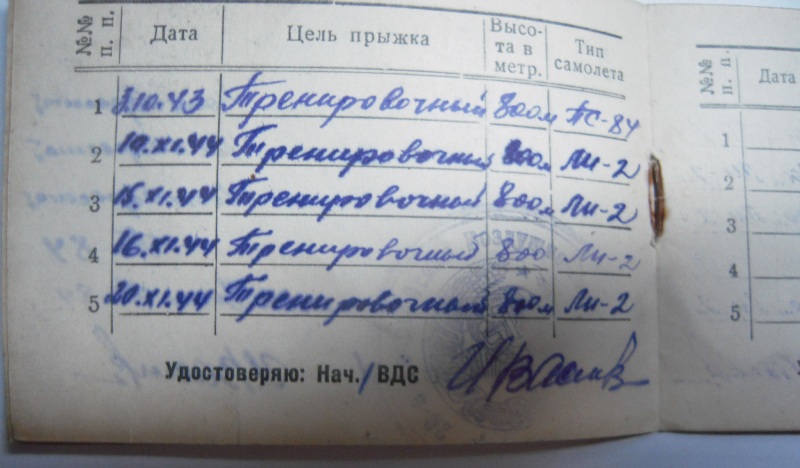 №№ п. п. Дата Цель прыжка Высота в метр. Тип самолета
1 3.10.43 Тренировочный 800м ПС-84
2 14.XI.44 Тренировочный 800м Ли-2
3 15.XI.44 Тренировочный 800м Ли-2
4 16.XI.44 Тренировочный 800 Ли-2
5 20.XI.44 Тренировочный 800м Ли-2
Удостоверяю: Нач. ВДС
№№ п. п. Дата
1
2
3
4
5